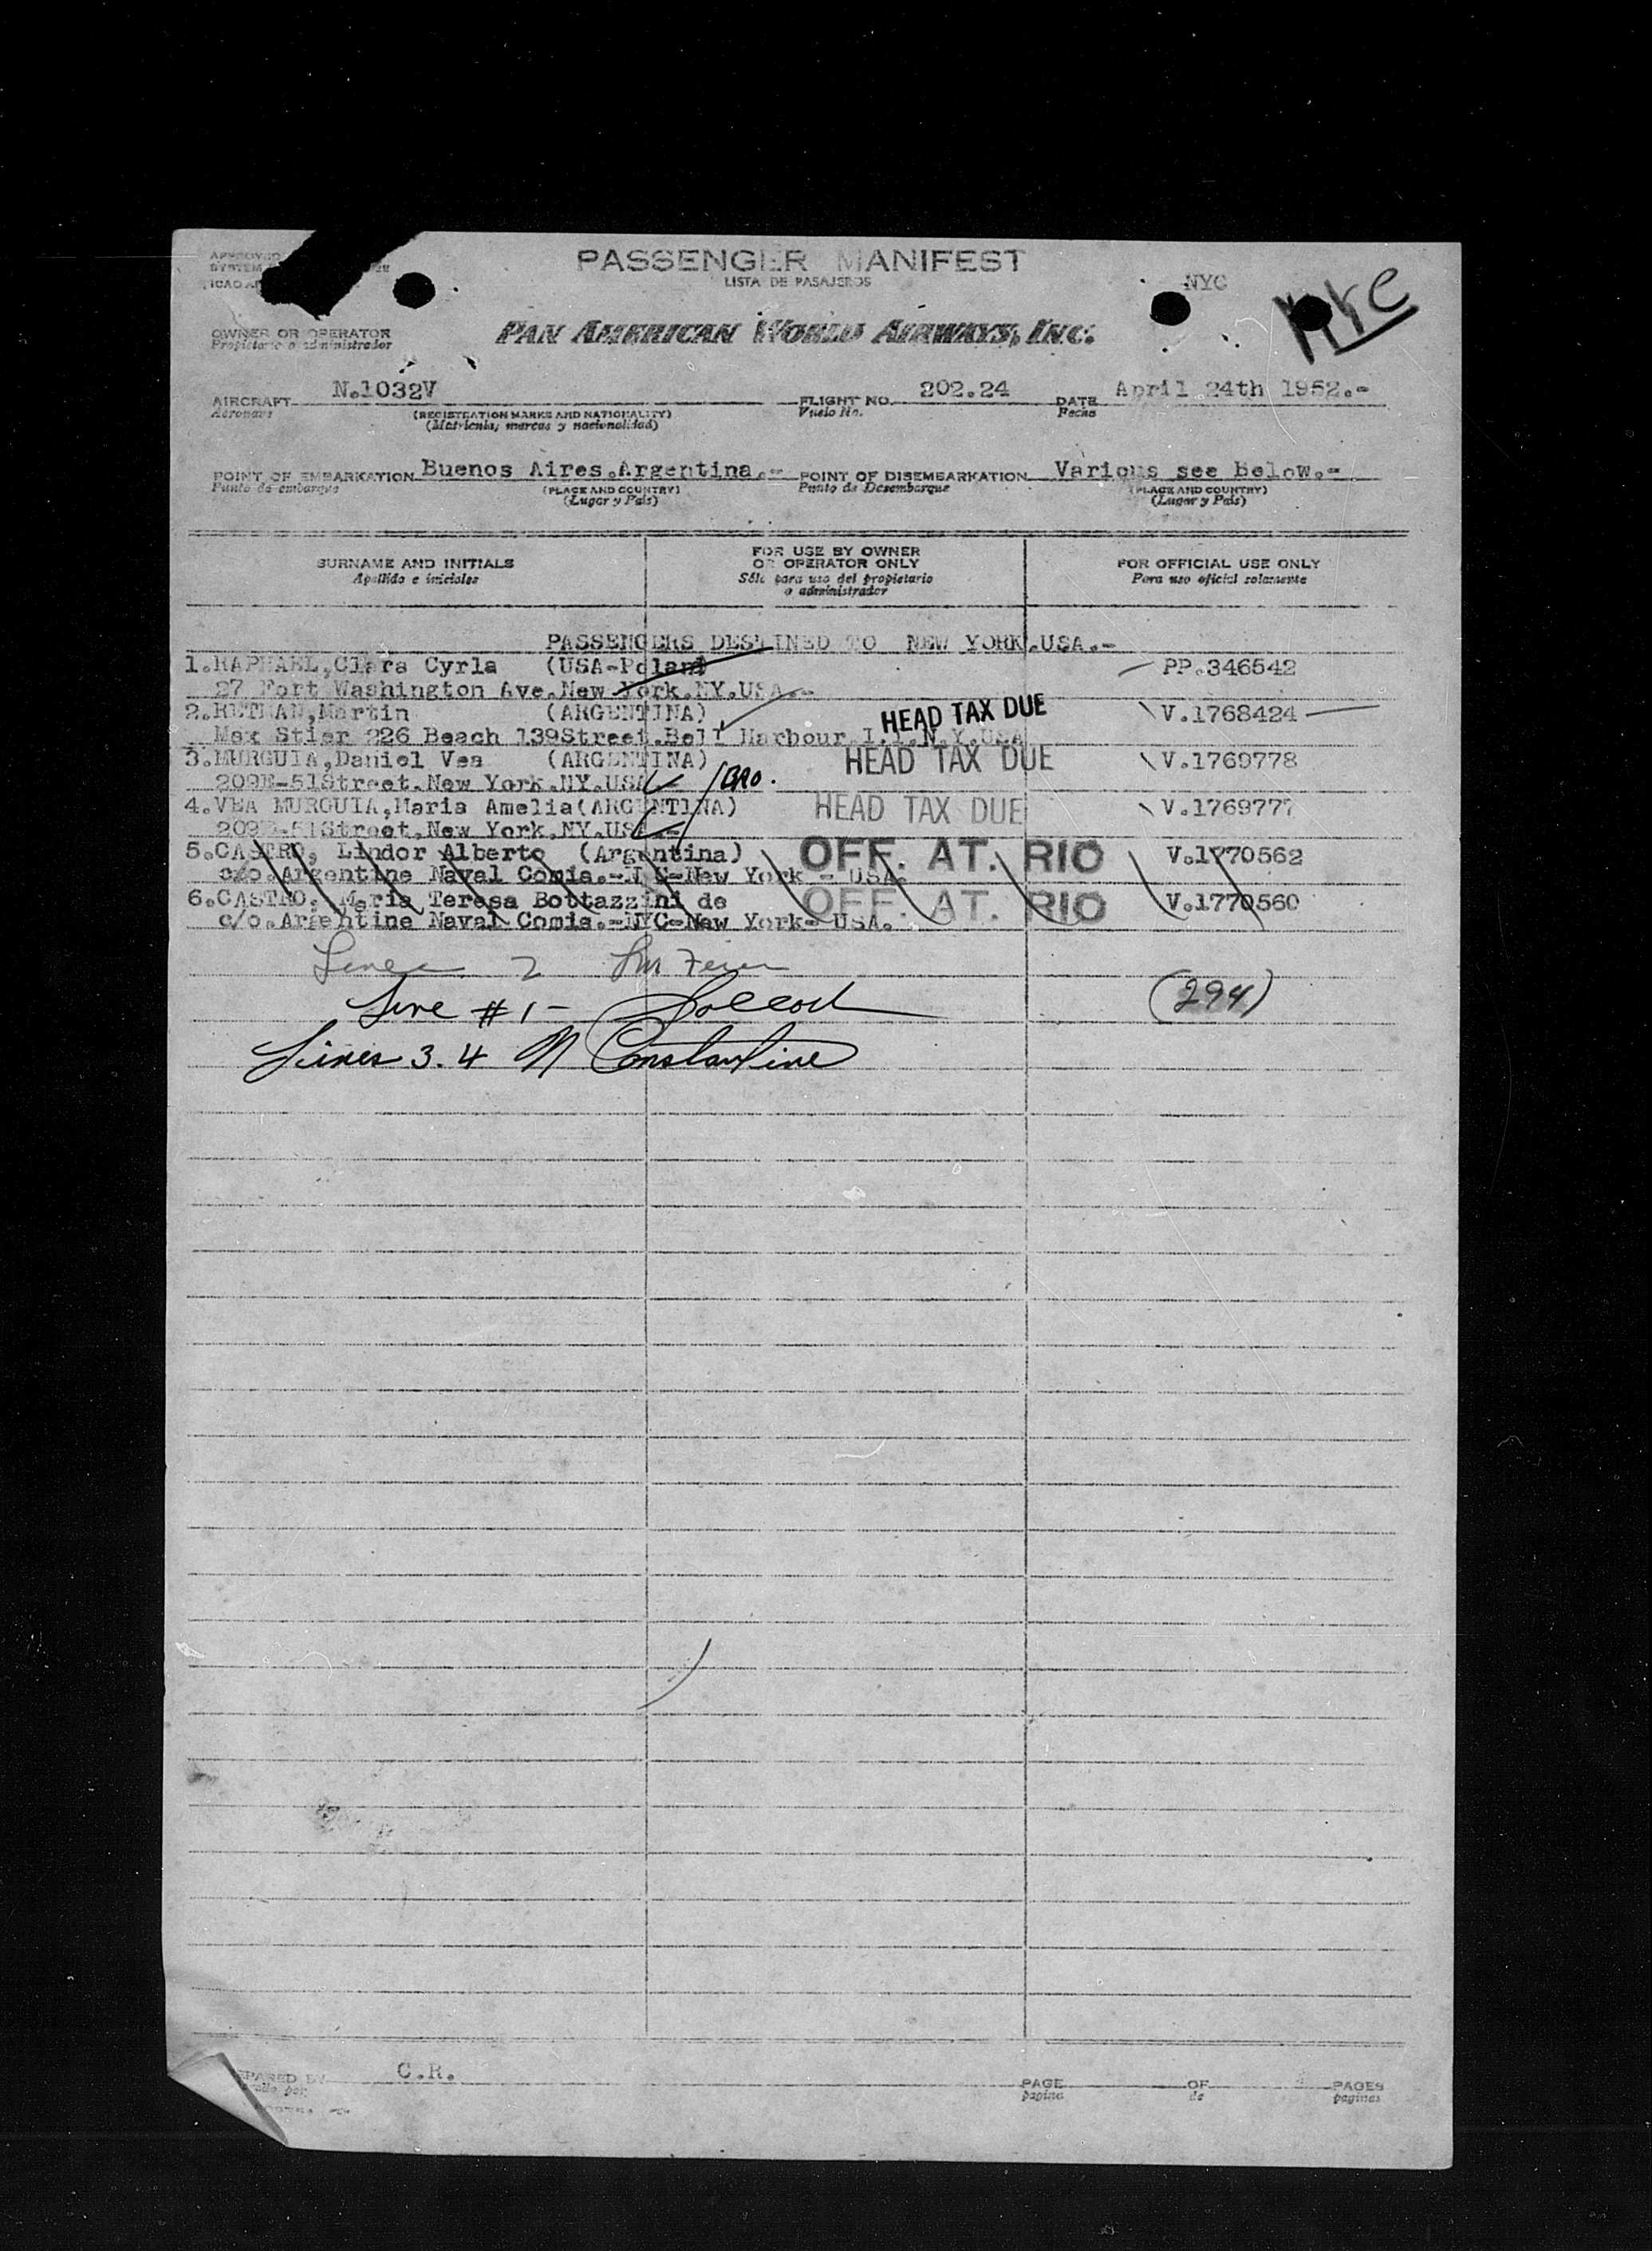 APPROVED
SYSTEM
ICAO
PASSENGER MANIFEST
LISTA DE PASAJEROS
NYC
OWNER OR OPERATOR
Propietario o administrador
PAN AMERICAN WORLD AIRWAYS, INC.
AIRCRAFT N.1032V FLIGHT NO. 202.24 DATE April 24th 1952.-
Aeronave (REGISTRATION MARKS AND NATIONALITY) Vuelo No. Fecha
(Matrícula, marcas y nacionalidad)
POINT OF EMBARKATION Buenos Aires.Argentina.- POINT OF DISEMBARKATION Various see Below.-
Punto de embarque (PLACE AND COUNTRY) Punto de Desembarque (PLACE AND COUNTRY)
(Lugar y País) (Lugar y País)
SURNAME AND INITIALS
Apellido e iniciales
FOR USE BY OWNER
OR OPERATOR ONLY
Sólo para uso del propietario
o administrador
FOR OFFICIAL USE ONLY
Para uso oficial solamente
PASSENGERS DESTINED TO NEW YORK.USA.-
1.RAPHAEL,Clara Cyrla (USA-Poland PP.346542
27 Fort Washington Ave.New York.NY.USA.-
2.RETMAN,Martin (ARGENTINA) HEAD TAX DUE V.1768424
Max Stier 226 Beach 139Street.Bell Harbour.I.I.N.Y.USA
3.MURGUIA,Daniel Vea (ARGENTINA) HEAD TAX DUE V.1769778
209E-51Street.New York.NY.USA
4.VEA MURGUIA,Maria Amelia(ARGENTINA) HEAD TAX DUE V.1769777
209E-51Street.New York.NY.USA.-
5.CASTRO, Lindor Alberto (Argentina) OFF. AT. RIO V.1770562
c/o.Argentine Naval Comis.-NYC-New York - USA.
6.CASTRO, Maria Teresa Bottazzini de OFF. AT. RIO V.1770560
c/o.Argentine Naval Comis.-NYC-New York- USA.
Line #1 - (294)
Lines 3.4 M Constantine
PREPARED BY C.R.
PAGE OF PAGES
pagina de paginas